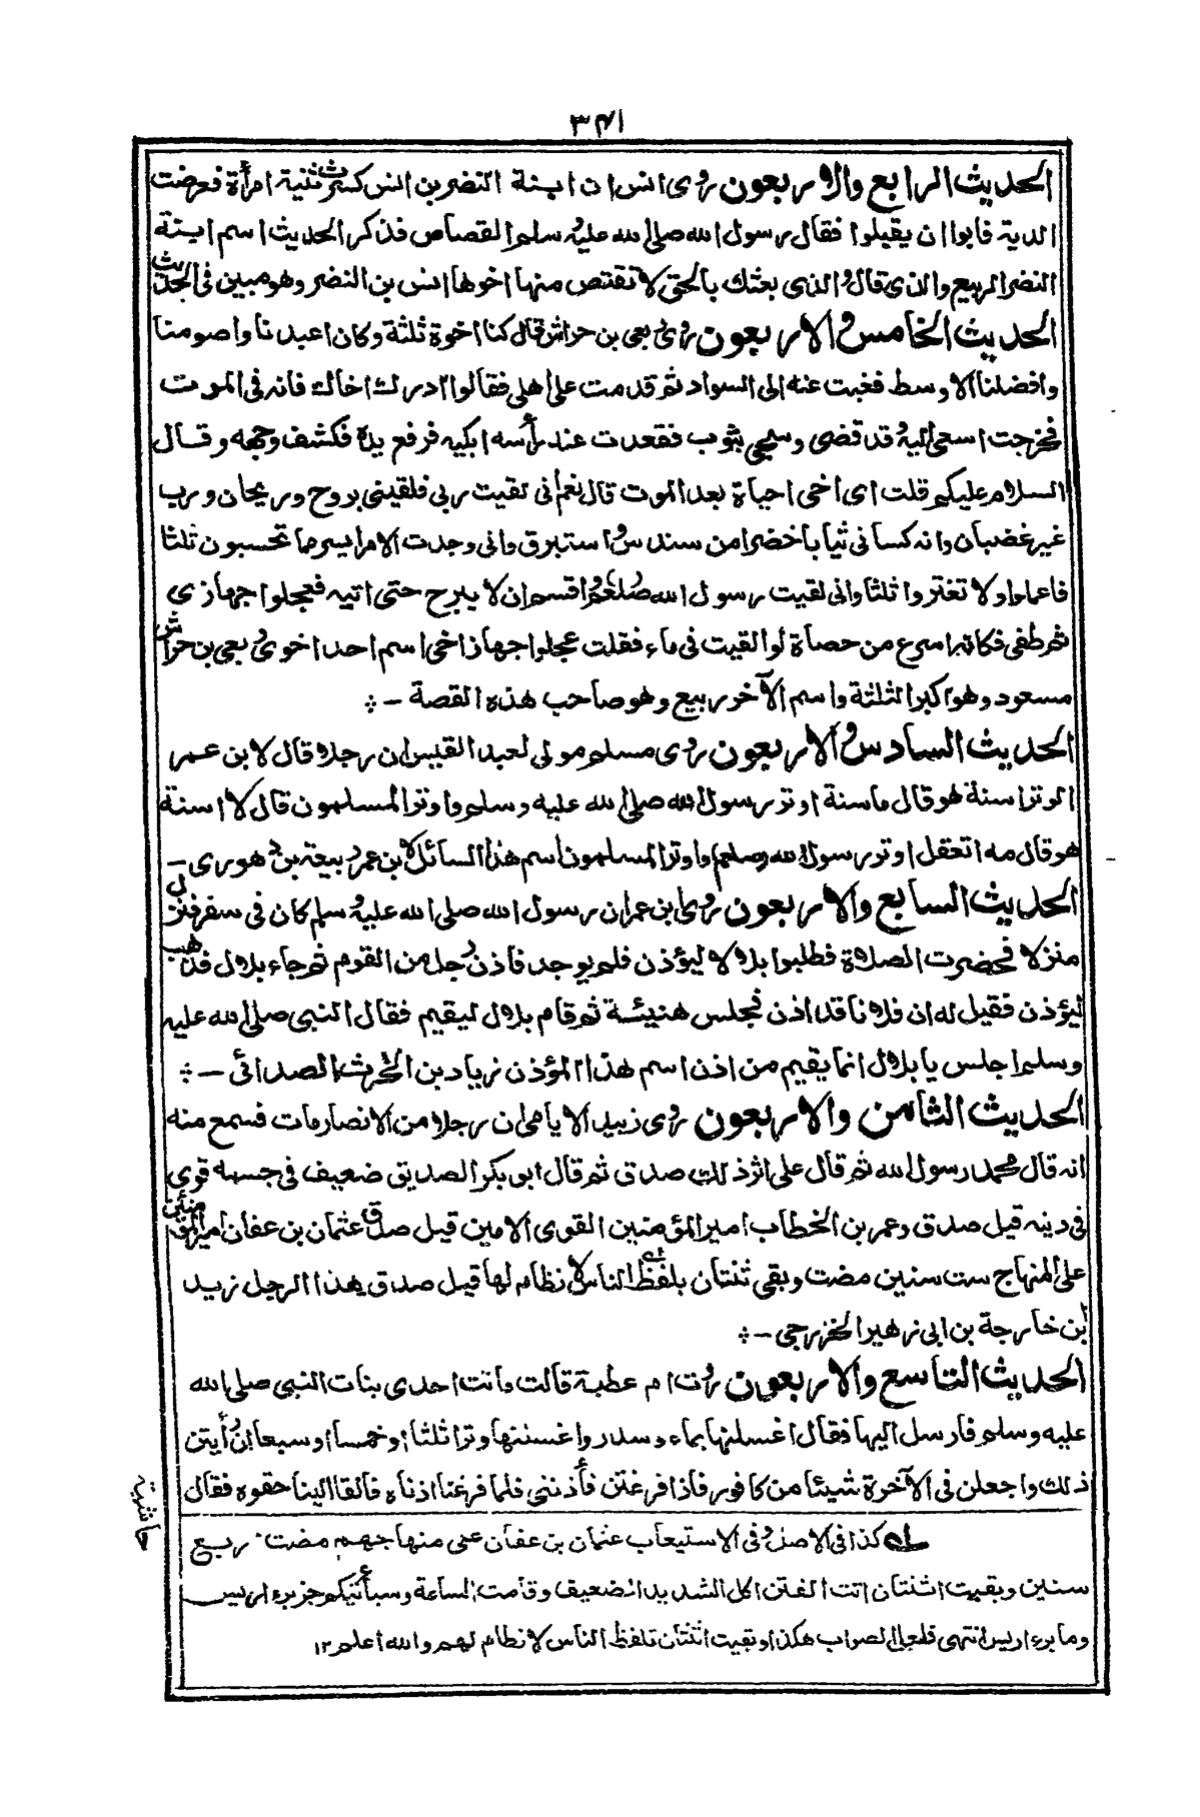 ٣٤١
الحديث الرابع والاربعون روى انس ان ابنة النضر بن انس كسرت ثنية امرأة فعرضت
الدية فابوا ان يقبلوا فقال رسول الله صلى الله عليه وسلم القصاص فذكر الحديث اسم ابنة
النضر الربيع والذى قال والذى بعثك بالحق لا تقتص منها اخوها انس بن النضر وهو مبين فى الحديث
الحديث الخامس والاربعون روى ربعى بن حراش قال كنا اخوة ثلثة وكان اعبدنا واصومنا
وافضلنا الاوسط فغبت عنه الى السواد ثم قدمت على اهلى فقالوا ادرك اخاك فانه فى الموت
فخرجت اسعى اليه وقد قضى وسجى بثوب فقعدت عند رأسه ابكيه فرفع يده فكشف وجهه وقال
السلام عليكم قلت اى اخى احياة بعد الموت قال نعم انى لقيت ربى فلقينى بروح وريحان ورب
غير غضبان وانه كسانى ثيابا خضرا من سندس واستبرق وانى وجدت الامر ايسر مما تحسبون ثلثا
فاعملوا ولا تغتروا ثلثا وانى لقيت رسول الله صلعم واقسم ان لا يبرح حتى اتيه فعجلوا جهازى
ثم طفى فكانه اسرع من حصاة لو القيت فى ماء فقلت عجلوا جهاز اخى اسم احد اخوى ربعى بن حراش
مسعود وهو اكبر الثلثة واسم الآخر ربيع وهو صاحب هذه القصة -
الحديث السادس والاربعون روى مسلم مولى لعبد القيس ان رجلا قال لابن عمر
الوتر اسنة هو قال ما سنة اوتر رسول الله صلى الله عليه وسلم واوتر المسلمون قال لا اسنة
هو قال مه اتعقل اوتر رسول الله وصلعم واوتر المسلمون اسم هذا السائل لابن عمر ربيعة بن هورى -
الحديث السابع والاربعون روى ابن عمر ان رسول الله صلى الله عليه وسلم كان فى سفر فنزل
منزلا فحضرت الصلاة فطلبوا بلالا ليؤذن فلم يوجد فاذن رجل من القوم ثم جاء بلال فذهب
ليؤذن فقيل له ان فلانا قد اذن فجلس هنيئة ثم قام بلال ليقيم فقال النبى صلى الله عليه
وسلم اجلس يا بلال انما يقيم من اذن اسم هذا المؤذن زياد بن الحرث الصدائى -
الحديث الثامن والاربعون روى زبيد الايامى ان رجلا من الانصار مات فسمع منه
انه قال محمد رسول الله ثم قال على اثر ذلك صدق ثم قال ابو بكر الصديق ضعيف فى جسمه قوى
فى دينه قيل صدق وعمر بن الخطاب امير المؤمنين القوى الامين قيل صدق عثمان بن عفان امير المؤمنين
على المنهاج ست سنين مضت وبقى ثنتان بلفظ اى الناس لا نظام لها قيل صدق هذا الرجل زيد
بن خارجة بن ابى زهير الخزرجى -
الحديث التاسع والاربعون روت ام عطية قالت ماتت احدى بنات النبى صلى الله
عليه وسلم فارسل اليها فقال اغسلنها بماء وسدر واغسلنها وترا ثلثا او خمسا او سبعا ان رأيتن
ذلك واجعلن فى الآخرة شيئا من كافور فاذا فرغتن فأذننى فلما فرغنا اذناه فالقا الينا حقوه فقال
حاشية
له كذا فى الاصل وفى الاستيعاب عثمان بن عفان على منهاجهم مضت ربيع
سنين وبقيت اثنتان اتت الفتن اكل الشديد الضعيف وقامت الساعة وسيأتيكم خبر بئر اريس
وما بئر اريس انتهى فلعل الصواب هكذا وبقيت اثنتان تلفظ الناس لا نظام لهم والله اعلم ١٢